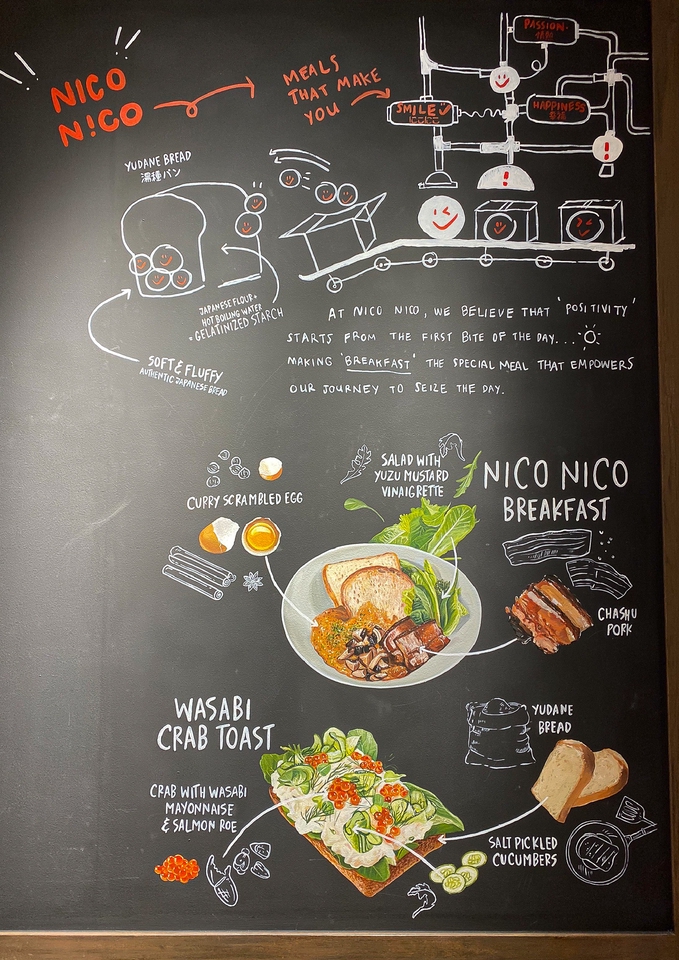 NICO
N!CO
MEALS
THAT MAKE
YOU
PASSION
SMILE
にこにこ
HAPPINESS
YUDANE BREAD
湯種パン
JAPANESE FLOUR +
HOT BOILING WATER
= GELATINIZED STARCH
SOFT & FLUFFY
AUTHENTIC JAPANESE BREAD
AT NICO NICO, WE BELIEVE THAT 'POSITIVITY'
STARTS FROM THE FIRST BITE OF THE DAY...
MAKING 'BREAKFAST' THE SPECIAL MEAL THAT EMPOWERS
OUR JOURNEY TO SEIZE THE DAY.
NICO NICO
BREAKFAST
SALAD WITH
YUZU MUSTARD
VINAIGRETTE
CURRY SCRAMBLED EGG
CHASHU
PORK
WASABI
CRAB TOAST
YUDANE
BREAD
CRAB WITH WASABI
MAYONNAISE
& SALMON ROE
SALT PICKLED
CUCUMBERS